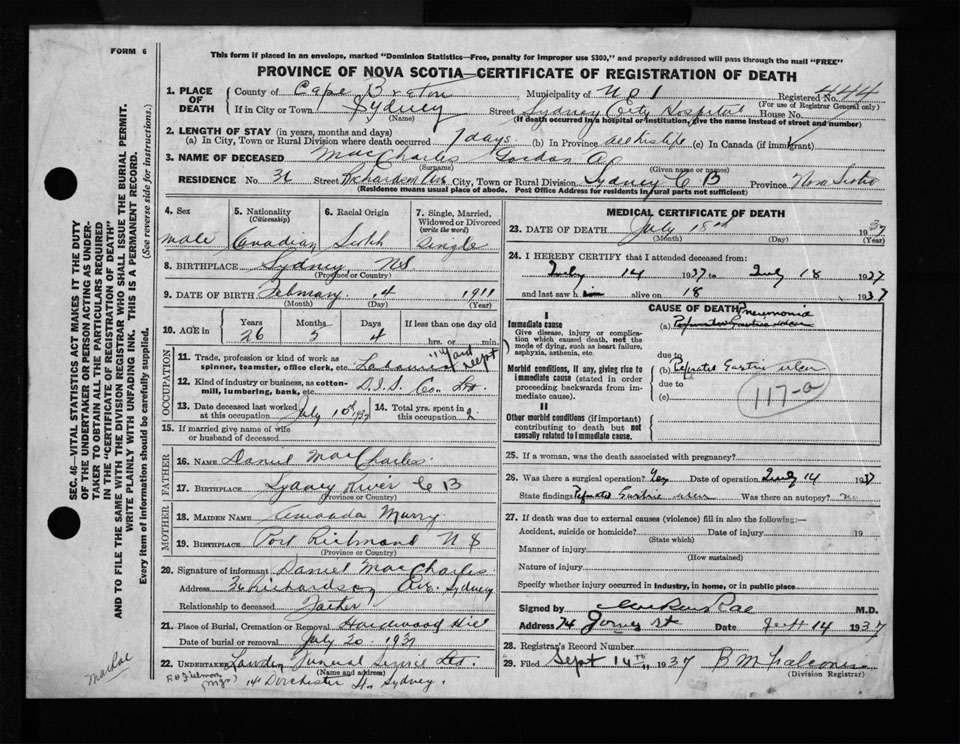 FORM 6
This form if placed in an envelope, marked "Dominion Statistics—Free, penalty for improper use $300," and properly addressed will pass through the mail "FREE"
PROVINCE OF NOVA SCOTIA—CERTIFICATE OF REGISTRATION OF DEATH
1. PLACE OF DEATH
County of Cape Breton Municipality of No 1 Registered No. 444
(For use of Registrar General only)
If in City or Town Sydney Street Sydney City Hospital House No.
(Name) (If death occurred in a hospital or institution, give the name instead of street and number)
2. LENGTH OF STAY (in years, months and days)
(a) In City, Town or Rural Division where death occurred 7 days (b) In Province all his life (c) In Canada (if immigrant)
3. NAME OF DECEASED MacCharles Gordon
(Surname) (Given name or names)
RESIDENCE No. 36 Street Richardson Ave City, Town or Rural Division Sydney C B Province Nova Scotia
(Residence means usual place of abode. Post Office Address for residents in rural parts not sufficient)
4. Sex
male
5. Nationality (Citizenship)
Canadian
6. Racial Origin
Scotch
7. Single, Married, Widowed or Divorced (write the word)
Single
8. BIRTHPLACE Sydney, NS
(Province or Country)
9. DATE OF BIRTH February 14 1911
(Month) (Day) (Year)
10. AGE in Years Months Days If less than one day old
26 5 4 hrs. or min.
OCCUPATION
11. Trade, profession or kind of work as spinner, teamster, office clerk, etc. Labourer "Yard Dept"
12. Kind of industry or business, as cotton-mill, lumbering, bank, etc. D.I.S. Co. Ltd.
13. Date deceased last worked at this occupation July 10th 1937
14. Total yrs. spent in this occupation 2.
15. If married give name of wife or husband of deceased
FATHER
16. NAME Daniel MacCharles
17. BIRTHPLACE Sydney River C B
(Province or Country)
MOTHER
18. MAIDEN NAME Amanda Murry
19. BIRTHPLACE Port Richmond N S
(Province or Country)
20. Signature of informant Daniel MacCharles
Address 36 Richardson Ave. Sydney
Relationship to deceased Father
21. Place of Burial, Cremation or Removal Hardwood Hill
Date of burial or removal July 20 1937
22. UNDERTAKER Funeral Service Ltd.
(Name and address)
(Mgr) 14 Dorchester St. Sydney.
MacRae
MEDICAL CERTIFICATE OF DEATH
23. DATE OF DEATH July 18th 1937
(Month) (Day) (Year)
24. I HEREBY CERTIFY that I attended deceased from:
July 14 1937 to July 18 1937
and last saw him alive on 18 1937
CAUSE OF DEATH
I
Immediate cause
Give disease, injury, or complication which caused death, not the mode of dying, such as heart failure, asphyxia, asthenia, etc.
Morbid conditions, if any, giving rise to immediate cause (stated in order proceeding backwards from immediate cause).
II
Other morbid conditions (if important) contributing to death but not causally related to immediate cause.
Pneumonia
(a) Perforated Gastric ulcer
due to
(b) Perforated Gastric ulcer
due to
(c)
117-a
25. If a woman, was the death associated with pregnancy?
26. Was there a surgical operation? Yes Date of operation July 14 1937
State findings Perforated Gastric ulcer Was there an autopsy? no
27. If death was due to external causes (violence) fill in also the following:—
Accident, suicide or homicide? Date of injury 19
(State which)
Manner of injury
(How sustained)
Nature of injury
Specify whether injury occurred in industry, in home, or in public place
Signed by Rae M.D.
Address 74 St Date Sept 14 1937
28. Registrar's Record Number
29. Filed Sept 14th 1937 B M Falconer
(Division Registrar)
SEC. 46—VITAL STATISTICS ACT MAKES IT THE DUTY
OF THE UNDERTAKER OR PERSON ACTING AS UNDER-
TAKER TO OBTAIN ALL THE PARTICULARS REQUIRED
IN THE "CERTIFICATE OF REGISTRATION OF DEATH"
AND TO FILE THE SAME WITH THE DIVISION REGISTRAR WHO SHALL ISSUE THE BURIAL PERMIT.
WRITE PLAINLY WITH UNFADING INK. THIS IS A PERMANENT RECORD.
Every item of information should be carefully supplied. (See reverse side for instructions.)